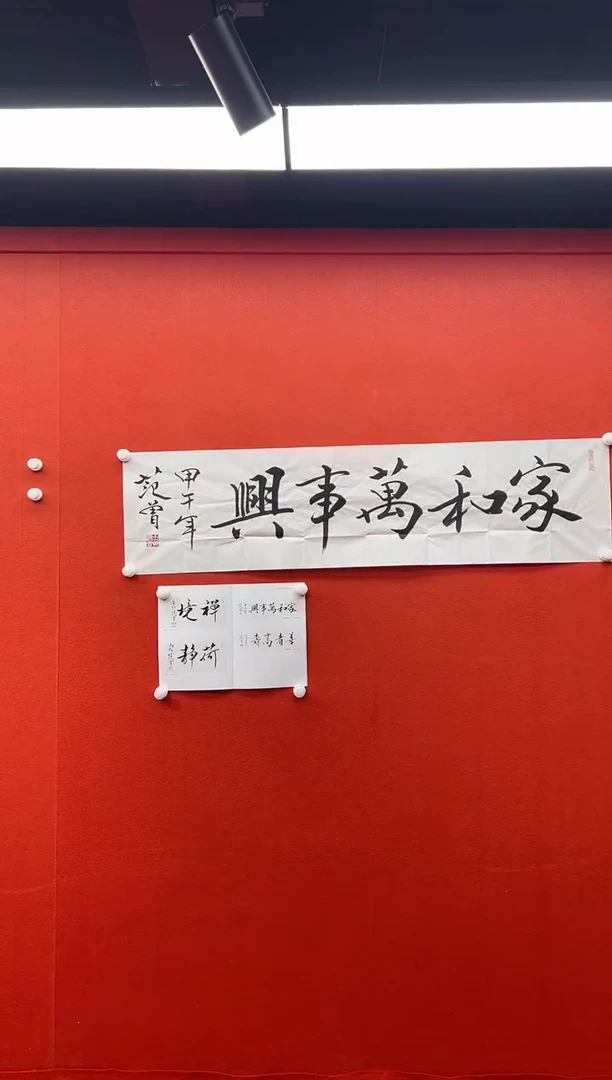 家和萬事興
甲午年
范曾
禪境
荷静
家和萬事興
善者高壽